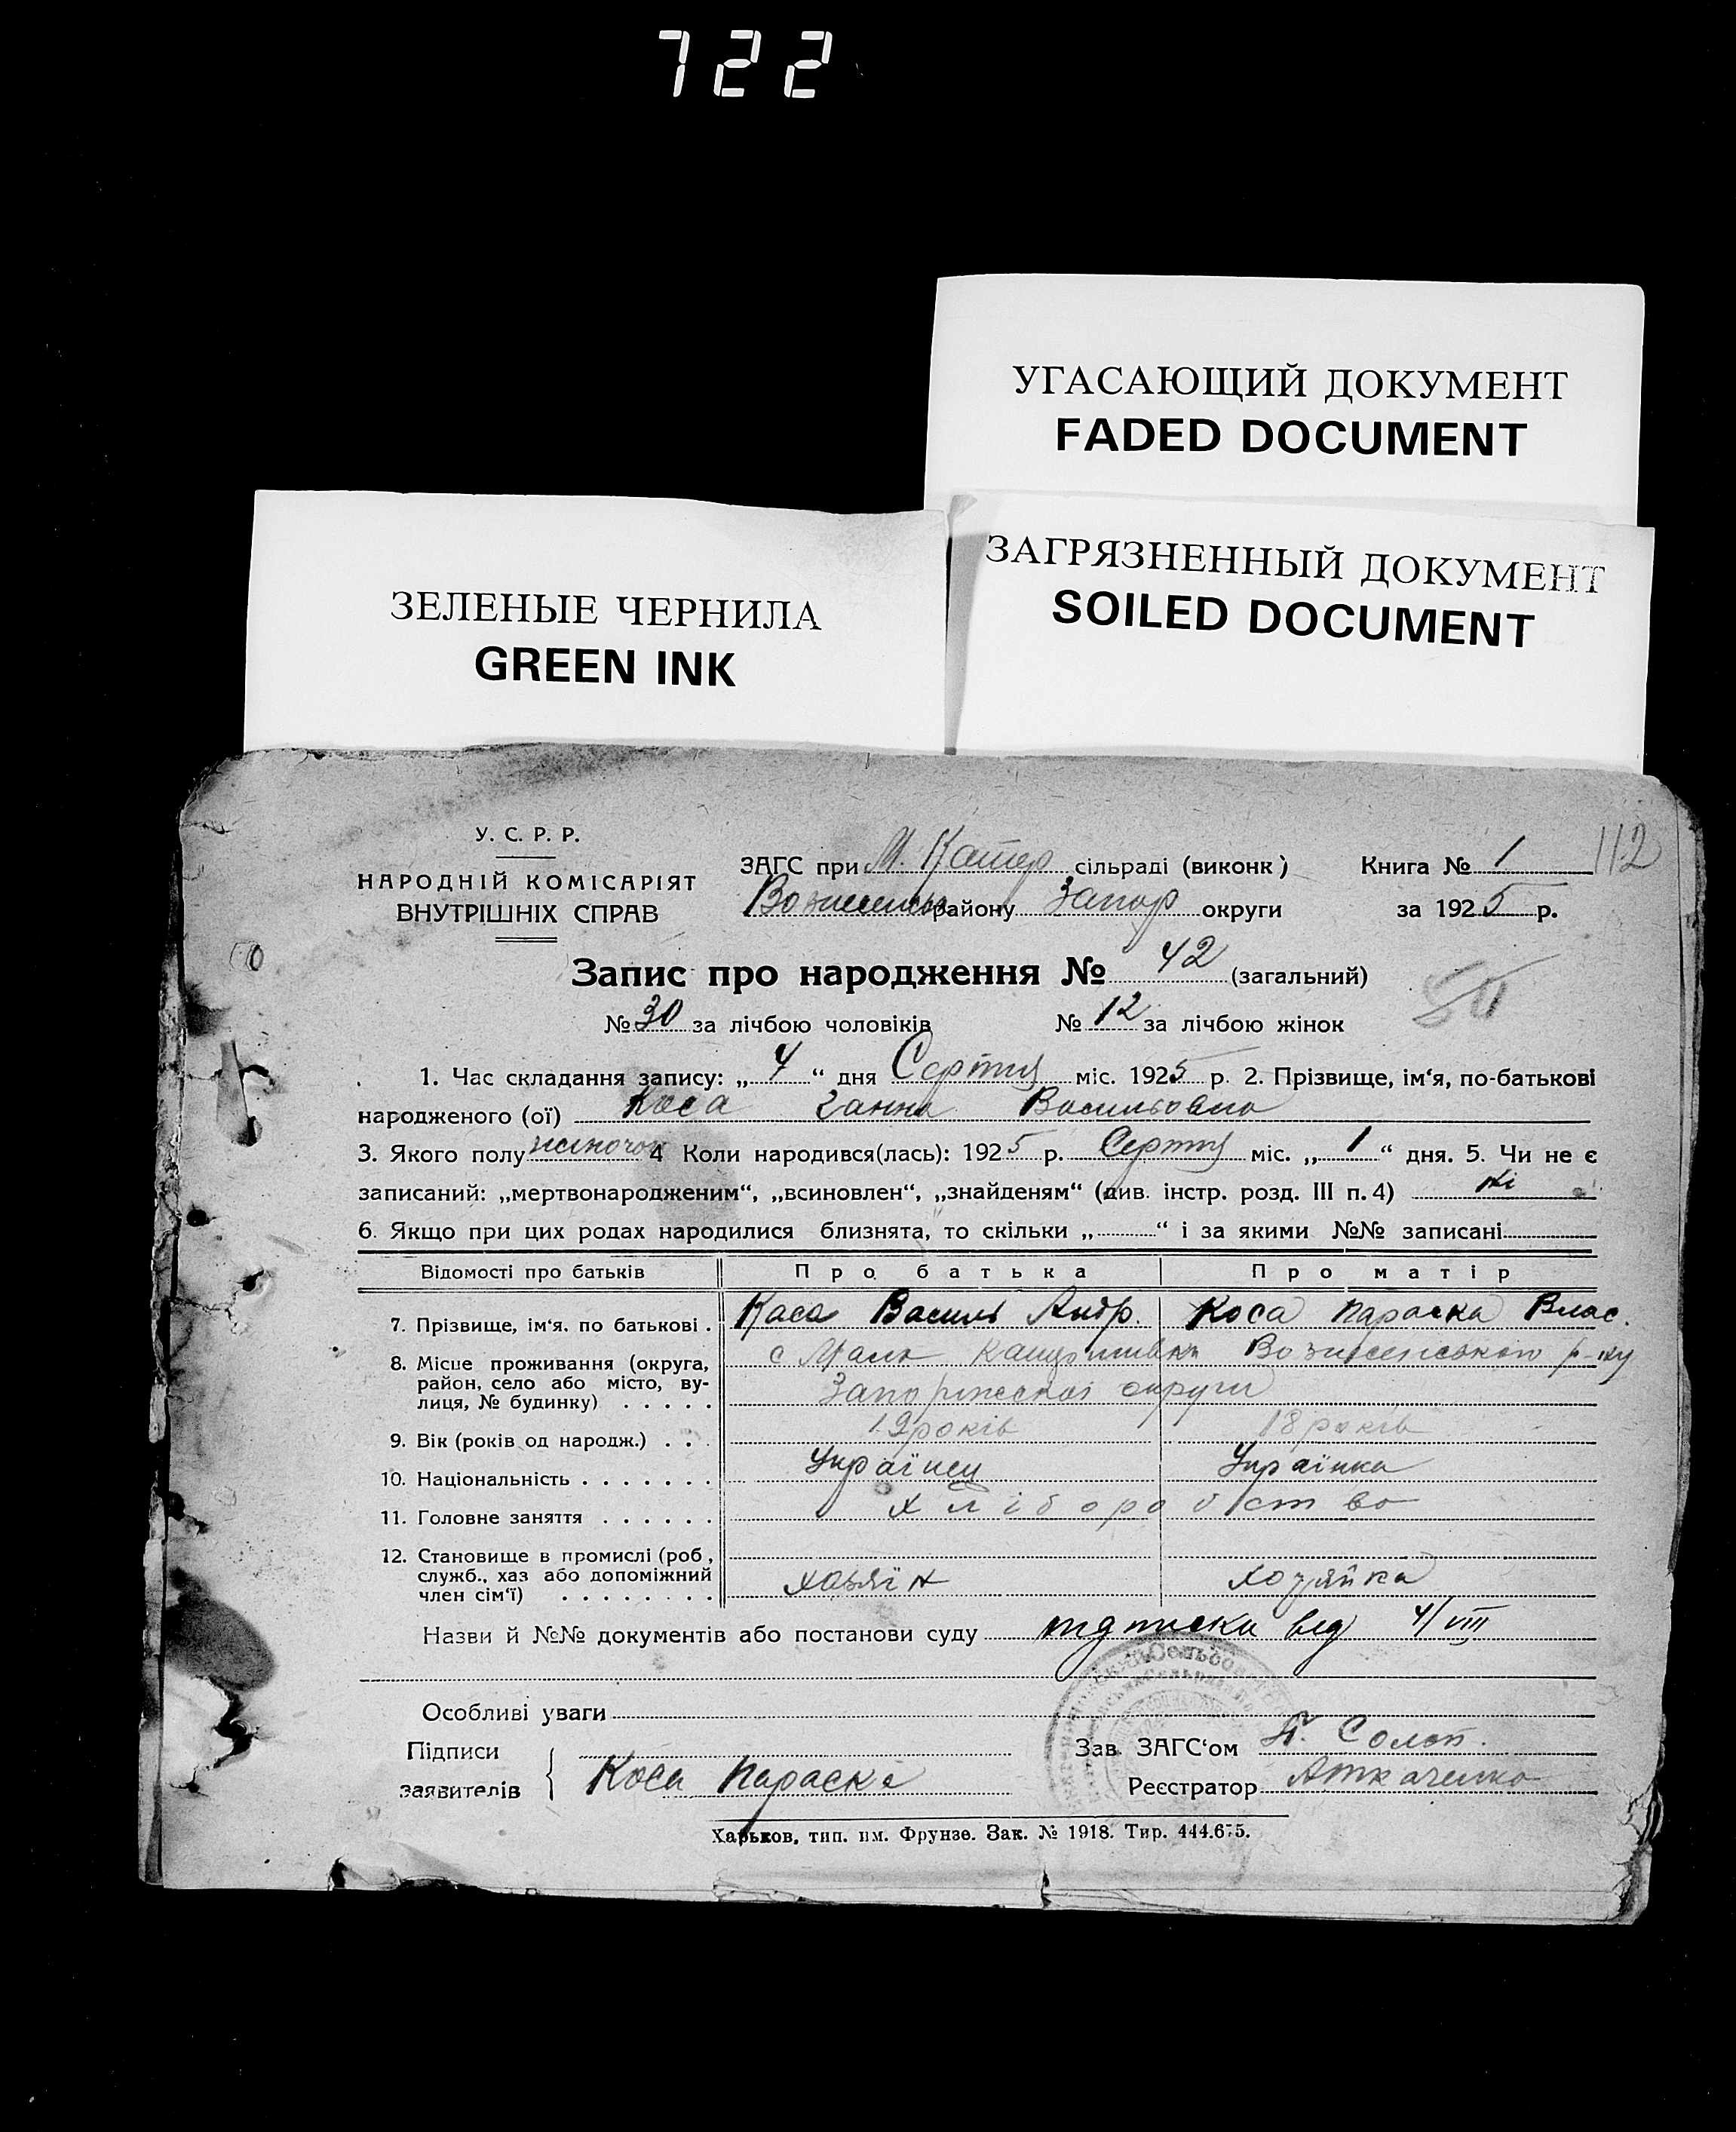 722
УГАСАЮЩИЙ ДОКУМЕНТ
FADED DOCUMENT
ЗАГРЯЗНЕННЫЙ ДОКУМЕНТ
SOILED DOCUMENT
ЗЕЛЕНЫЕ ЧЕРНИЛА
GREEN INK
112
У. С. Р. Р.
НАРОДНІЙ КОМІСАРІЯТ
ВНУТРІШНІХ СПРАВ
ЗАГС при М. Катер сільраді (виконк)
району Запор округи
Книга № 1
за 1925 р.
Запис про народження № 42 (загальний)
№ 30 за лічбою чоловіків № 12 за лічбою жінок
1. Час складання запису: „4“ дня Серпня міс. 1925 р. 2. Прізвище, ім‘я, по-батькові
народженого (ої) Коса Ганна Васильовна
3. Якого полу жіночої 4 Коли народився(лась): 1925 р. Серпня міс. „1“ дня. 5. Чи не є
записаний: „мертвонародженим“, „всиновлен“, „знайденям“ (див. інстр. розд. III п. 4) ні
6. Якщо при цих родах народилися близнята, то скільки „ “ і за якими №№ записані
Відомості про батьків Про батька Про матір
7. Прізвище, ім‘я. по батькові . Каса Василь Андр. Коса Параска Влас.
8. Місце проживання (округа, район, село або місто, вулиця, № будинку) с Мало Вознесенського р-ну
округи
9. Вік (років од народж.) . . . 19 років 18 років
10. Національність . . . . . . . Українец Українка
11. Головне заняття . . . . . . хліборобство
12. Становище в промислі (роб, служб., хаз або допоміжний член сім‘ї) . . . . . . . . хазяїн хозяйка
Назви й №№ документів або постанови суду підписка від 4/VIII
Особливі уваги
Підписи
заявителів Коса Параска
Зав. ЗАГС‘ом
Реєстратор Аткаченко
Харьков, тип. им. Фрунзе. Зак. № 1918. Тир. 444.675.